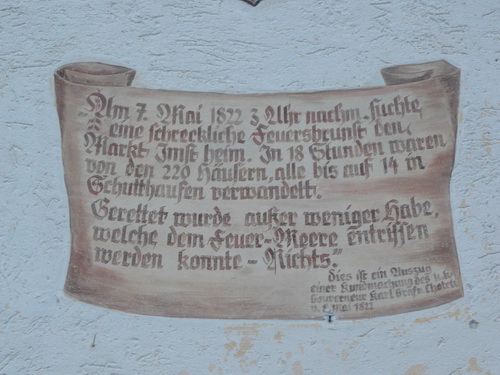 „Am 7. Mai 1822 3 Uhr nachm. suchte
eine schreckliche Feuersbrunst den
Markt Imst heim. In 18 Stunden waren
von den 220 Häusern, alle bis auf 14 in
Schutthaufen verwandelt.
Gerettet wurde außer weniger Habe,
welche dem Feuer-Meere entrissen
werden konnte - Nichts."
Dies ist ein Auszug
einer Kundmachung des k.k.
Gouverneur Karl Grafn. Chotek
v. 8. Mai 1822